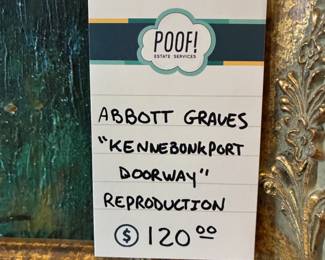 POOF!
ESTATE SERVICES
ABBOTT GRAVES
"KENNEBONKPORT
DOORWAY"
REPRODUCTION
$ 120 00